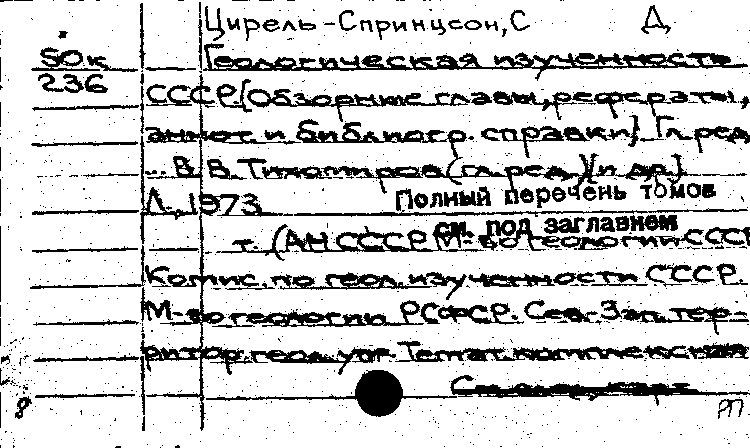 Цирель-Спринцсон, С Д
50к Геологическая изученность
236 СССР. [Обзорные главы, рефераты,
аннот. и библиогр. справки]. Гл. ред.
... В. В. Тихомиров (гл. ред.) [и др.]
Л., 1973 Полный перечень томов
см. под заглавием
т. (АН СССР М-во геологии СССР
Комис. по геол. изученности СССР.
М-во геологии РСФСР. Сев.-Зап. тер-
ритор. геол. упр. Темат. комплексная
См. след. карт.
8 РП